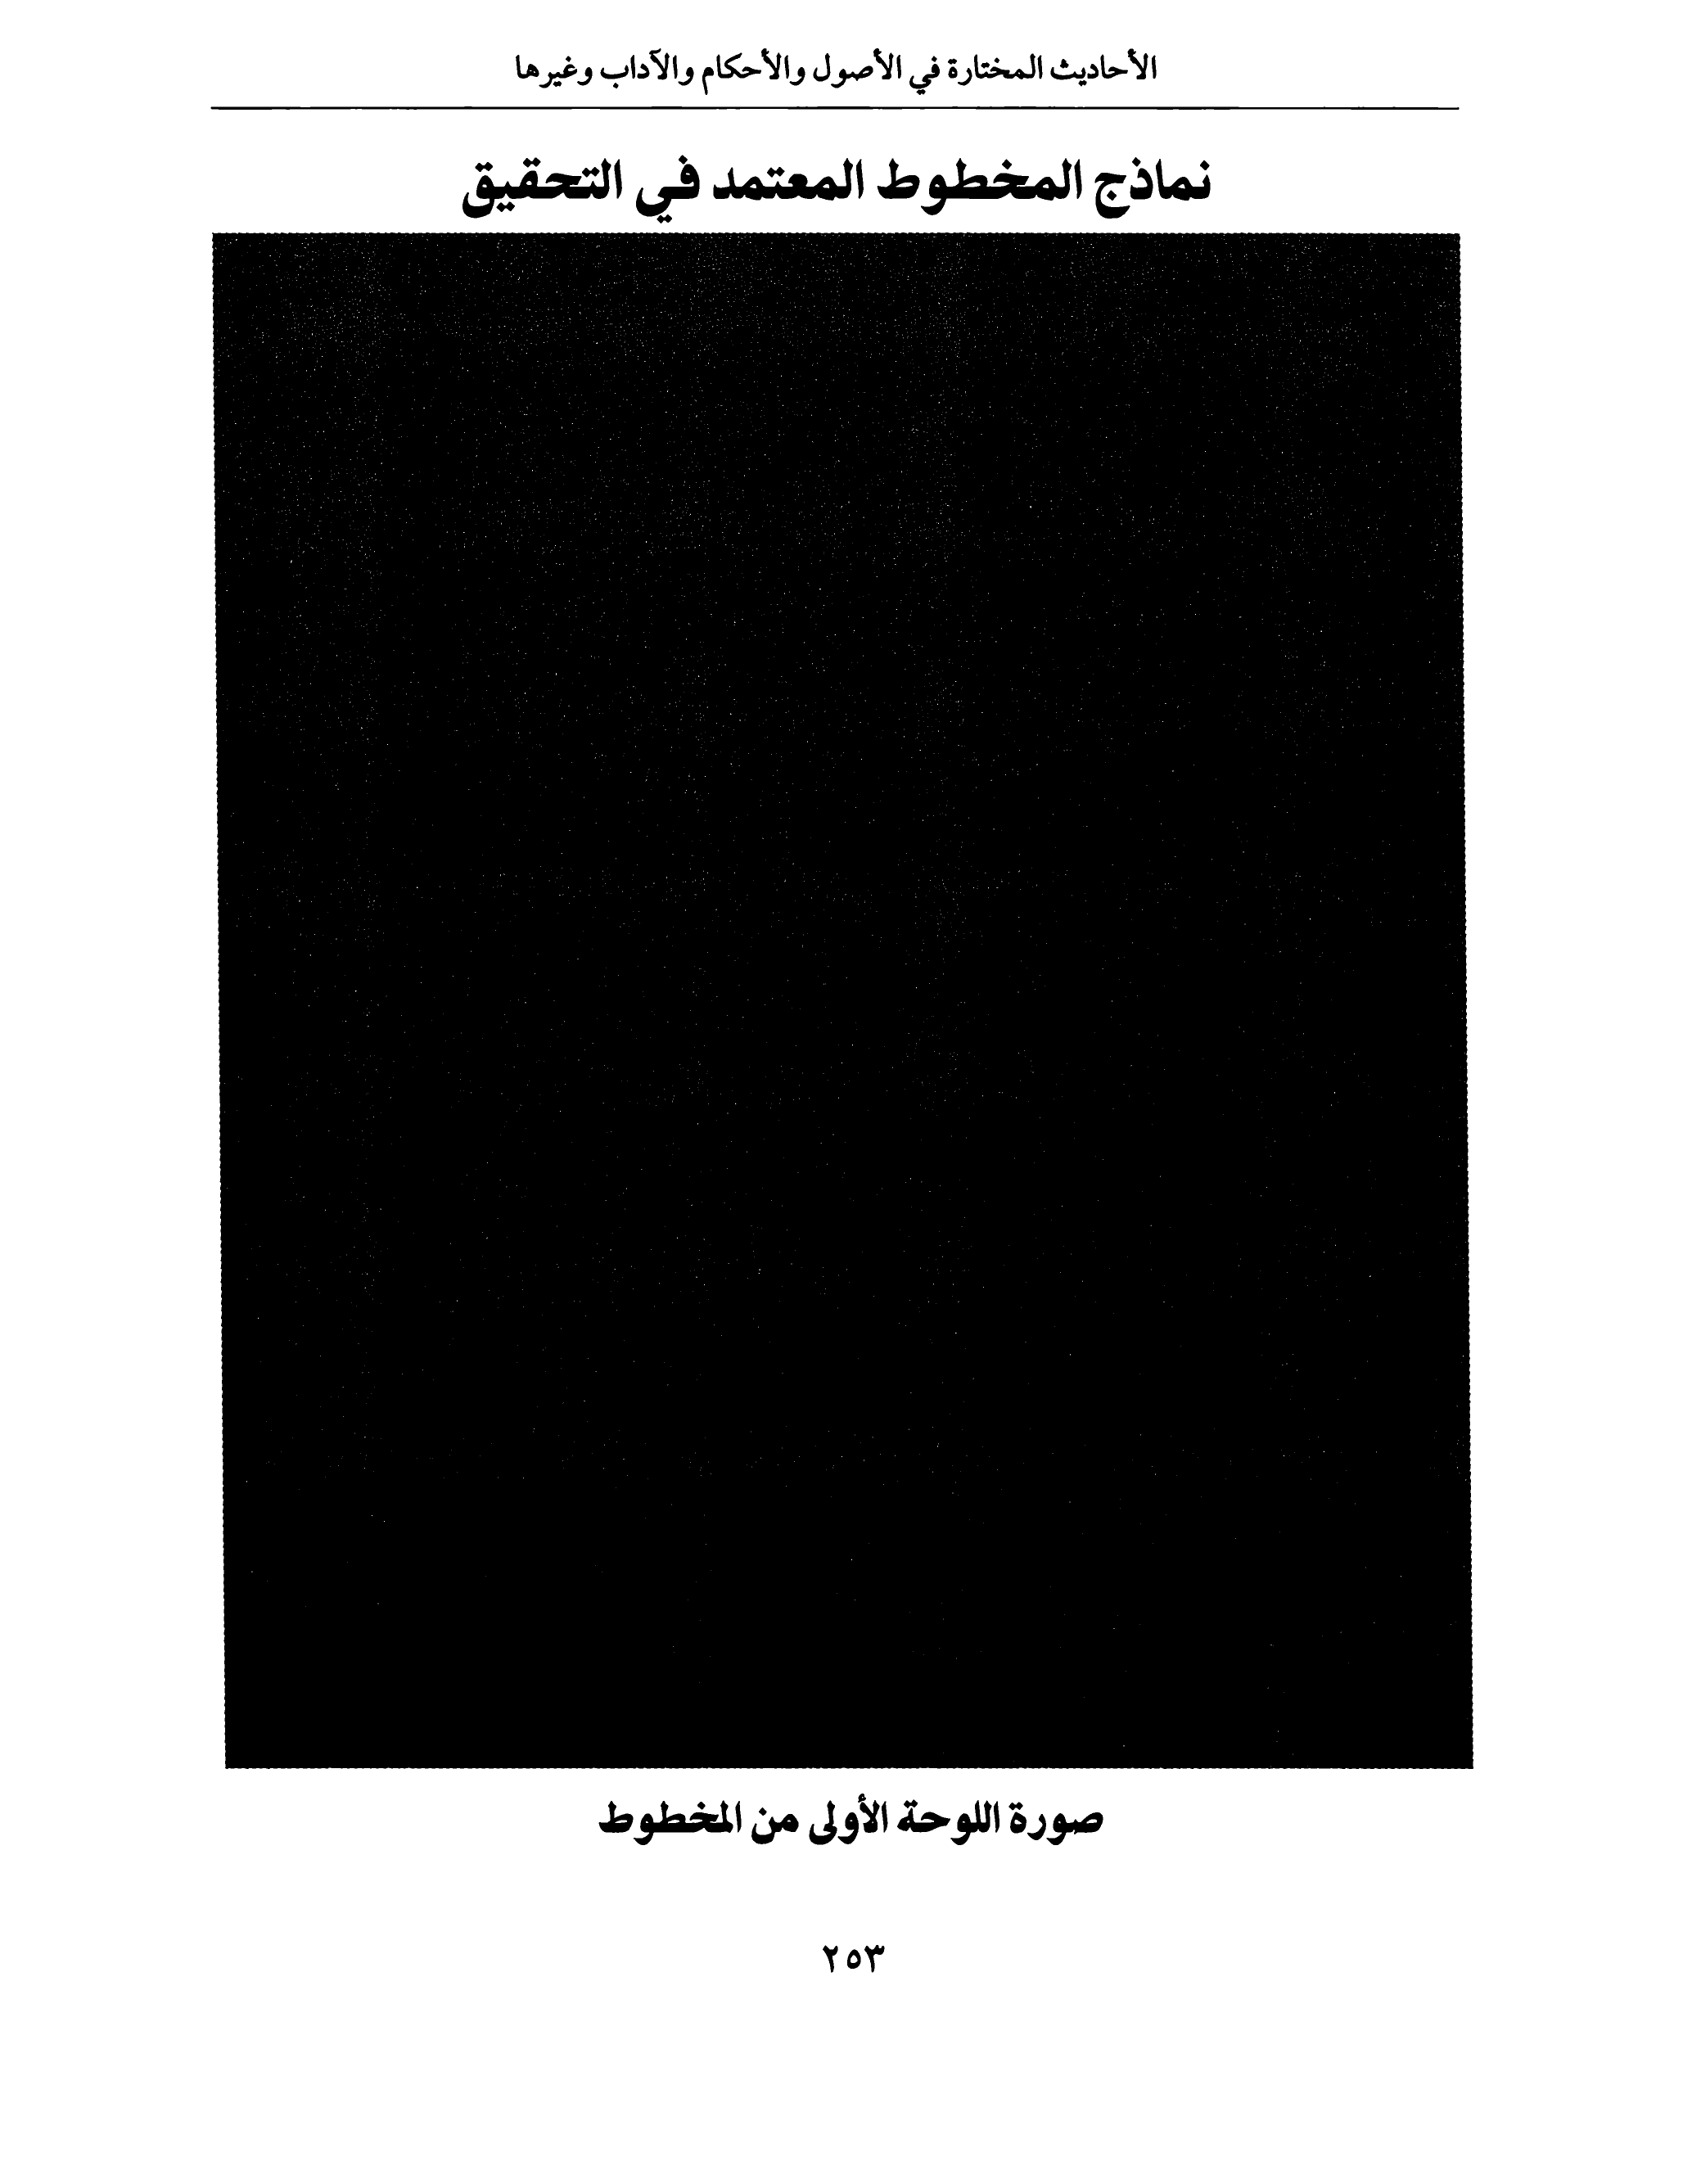 الأحاديث المختارة في الأصول والأحكام والآداب وغيرها
نماذج المخطوط المعتمد في التحقيق
صورة اللوحة الأولى من المخطوط
٢٥٣